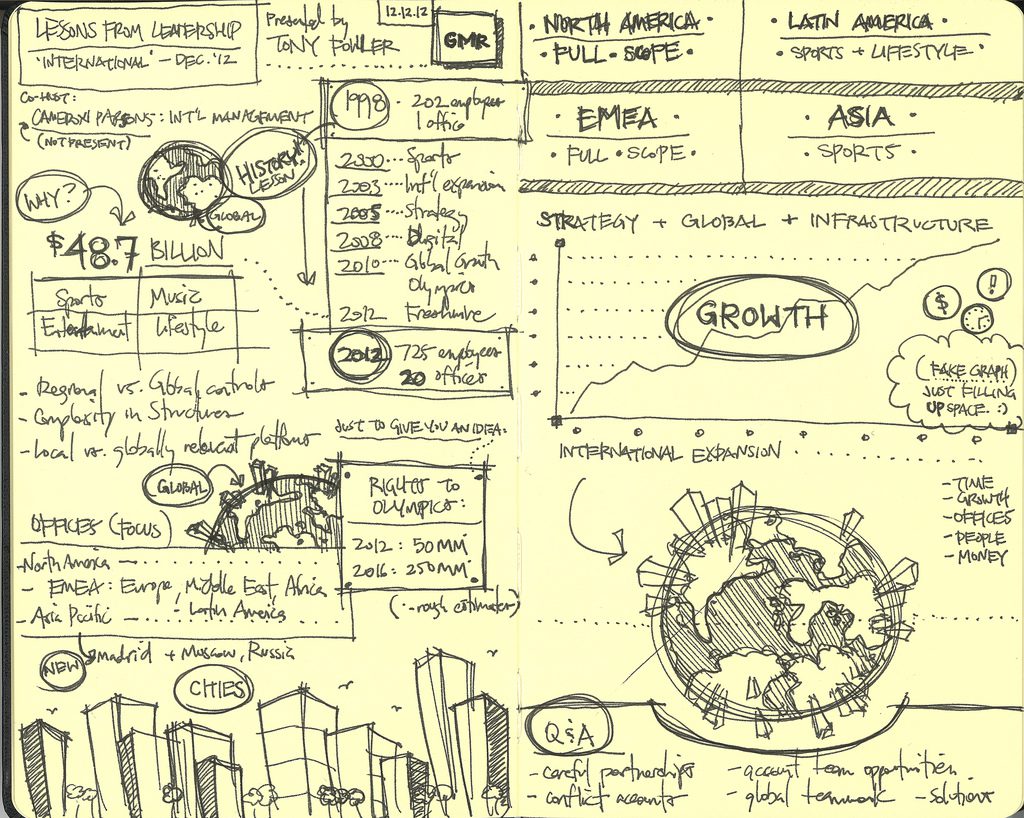 LESSONS FROM LEADERSHIP
"INTERNATIONAL" - DEC. '12
Presented by
TONY FOWLER
12.12.12
GMR
CO-HOST:
CAMERON PARSONS: INT'L MANAGEMENT
(NOT PRESENT)
HISTORY
LESSON
GLOBAL
WHY?
$48.7 BILLION
Sports Music
Entertainment Lifestyle
- Regional vs. Global controls
- Complexity in Structures
- Local vs. globally relevant platforms
1998 · 202 employees
1 office
2000 ··· Sports
2003 ··· Int'l expansion
2005 ··· Strategy
2008 ··· Digital
2010 ··· Global Growth
Olympics
2012 Freshwire
2012 725 employees
20 offices
JUST TO GIVE YOU AN IDEA:
RIGHTS TO
OLYMPICS:
2012: 50MM
2016: 250MM
(·-rough estimates)
GLOBAL
OFFICES (FOCUS)
- North America
- EMEA: Europe, Middle East, Africa
- Asia Pacific - Latin America
NEW Madrid + Moscow, Russia
CITIES
· NORTH AMERICA ·
· FULL · SCOPE ·
· LATIN AMERICA ·
· SPORTS + LIFESTYLE ·
· EMEA ·
· FULL · SCOPE ·
· ASIA ·
· SPORTS ·
STRATEGY + GLOBAL + INFRASTRUCTURE
GROWTH
$
!
(FAKE GRAPH)
JUST FILLING
UP SPACE. :)
INTERNATIONAL EXPANSION
- TIME
- GROWTH
- OFFICES
- PEOPLE
- MONEY
Q&A
- careful partnerships
- conflict accounts
- account team opportunities
- global teamwork - Solutions